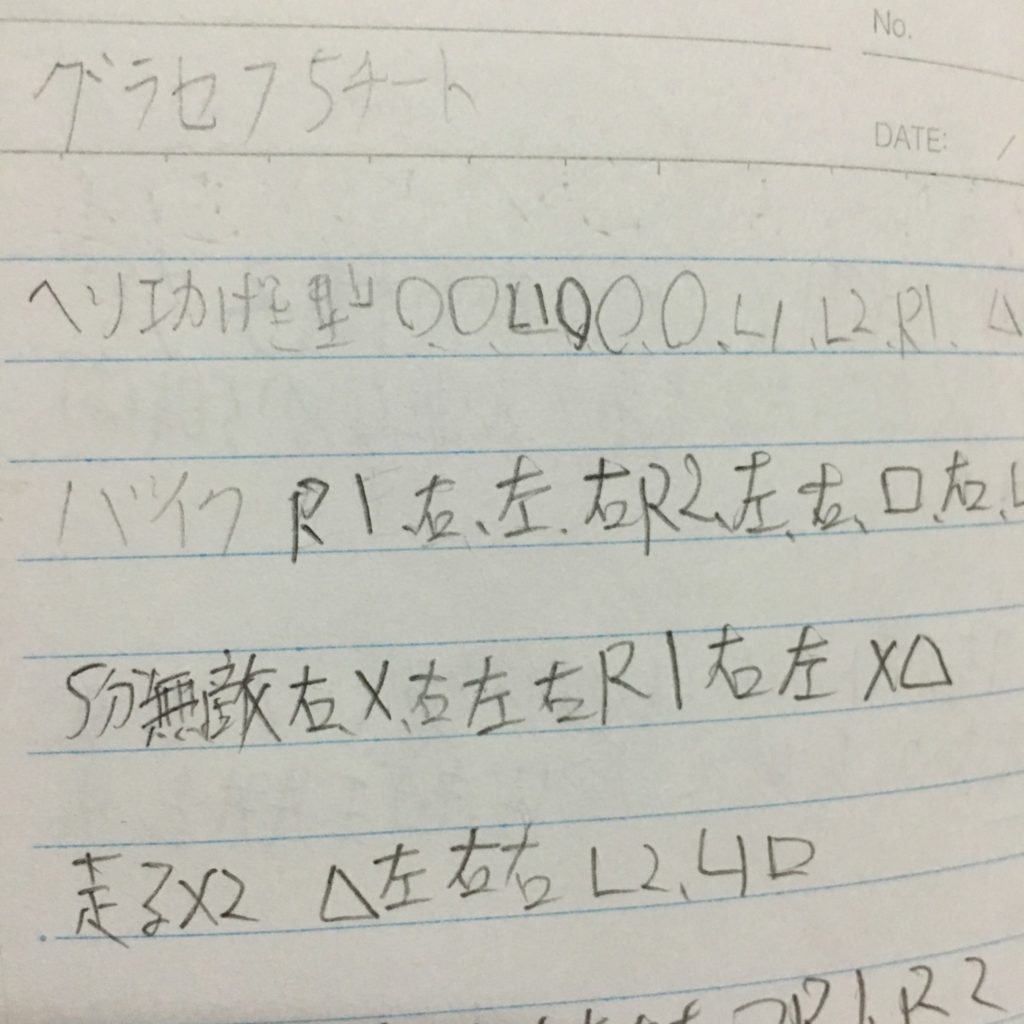 No.
グラセフ5チート
DATE: /
ヘリ 型 〇〇L1〇〇〇.L1.L2.R1.△
バイク R1.右、左.右R2、左、右、□.右、L
5分無敵右、X、右左右R1右左X△
走るX2 △左右右L2、L1□
R1.R2